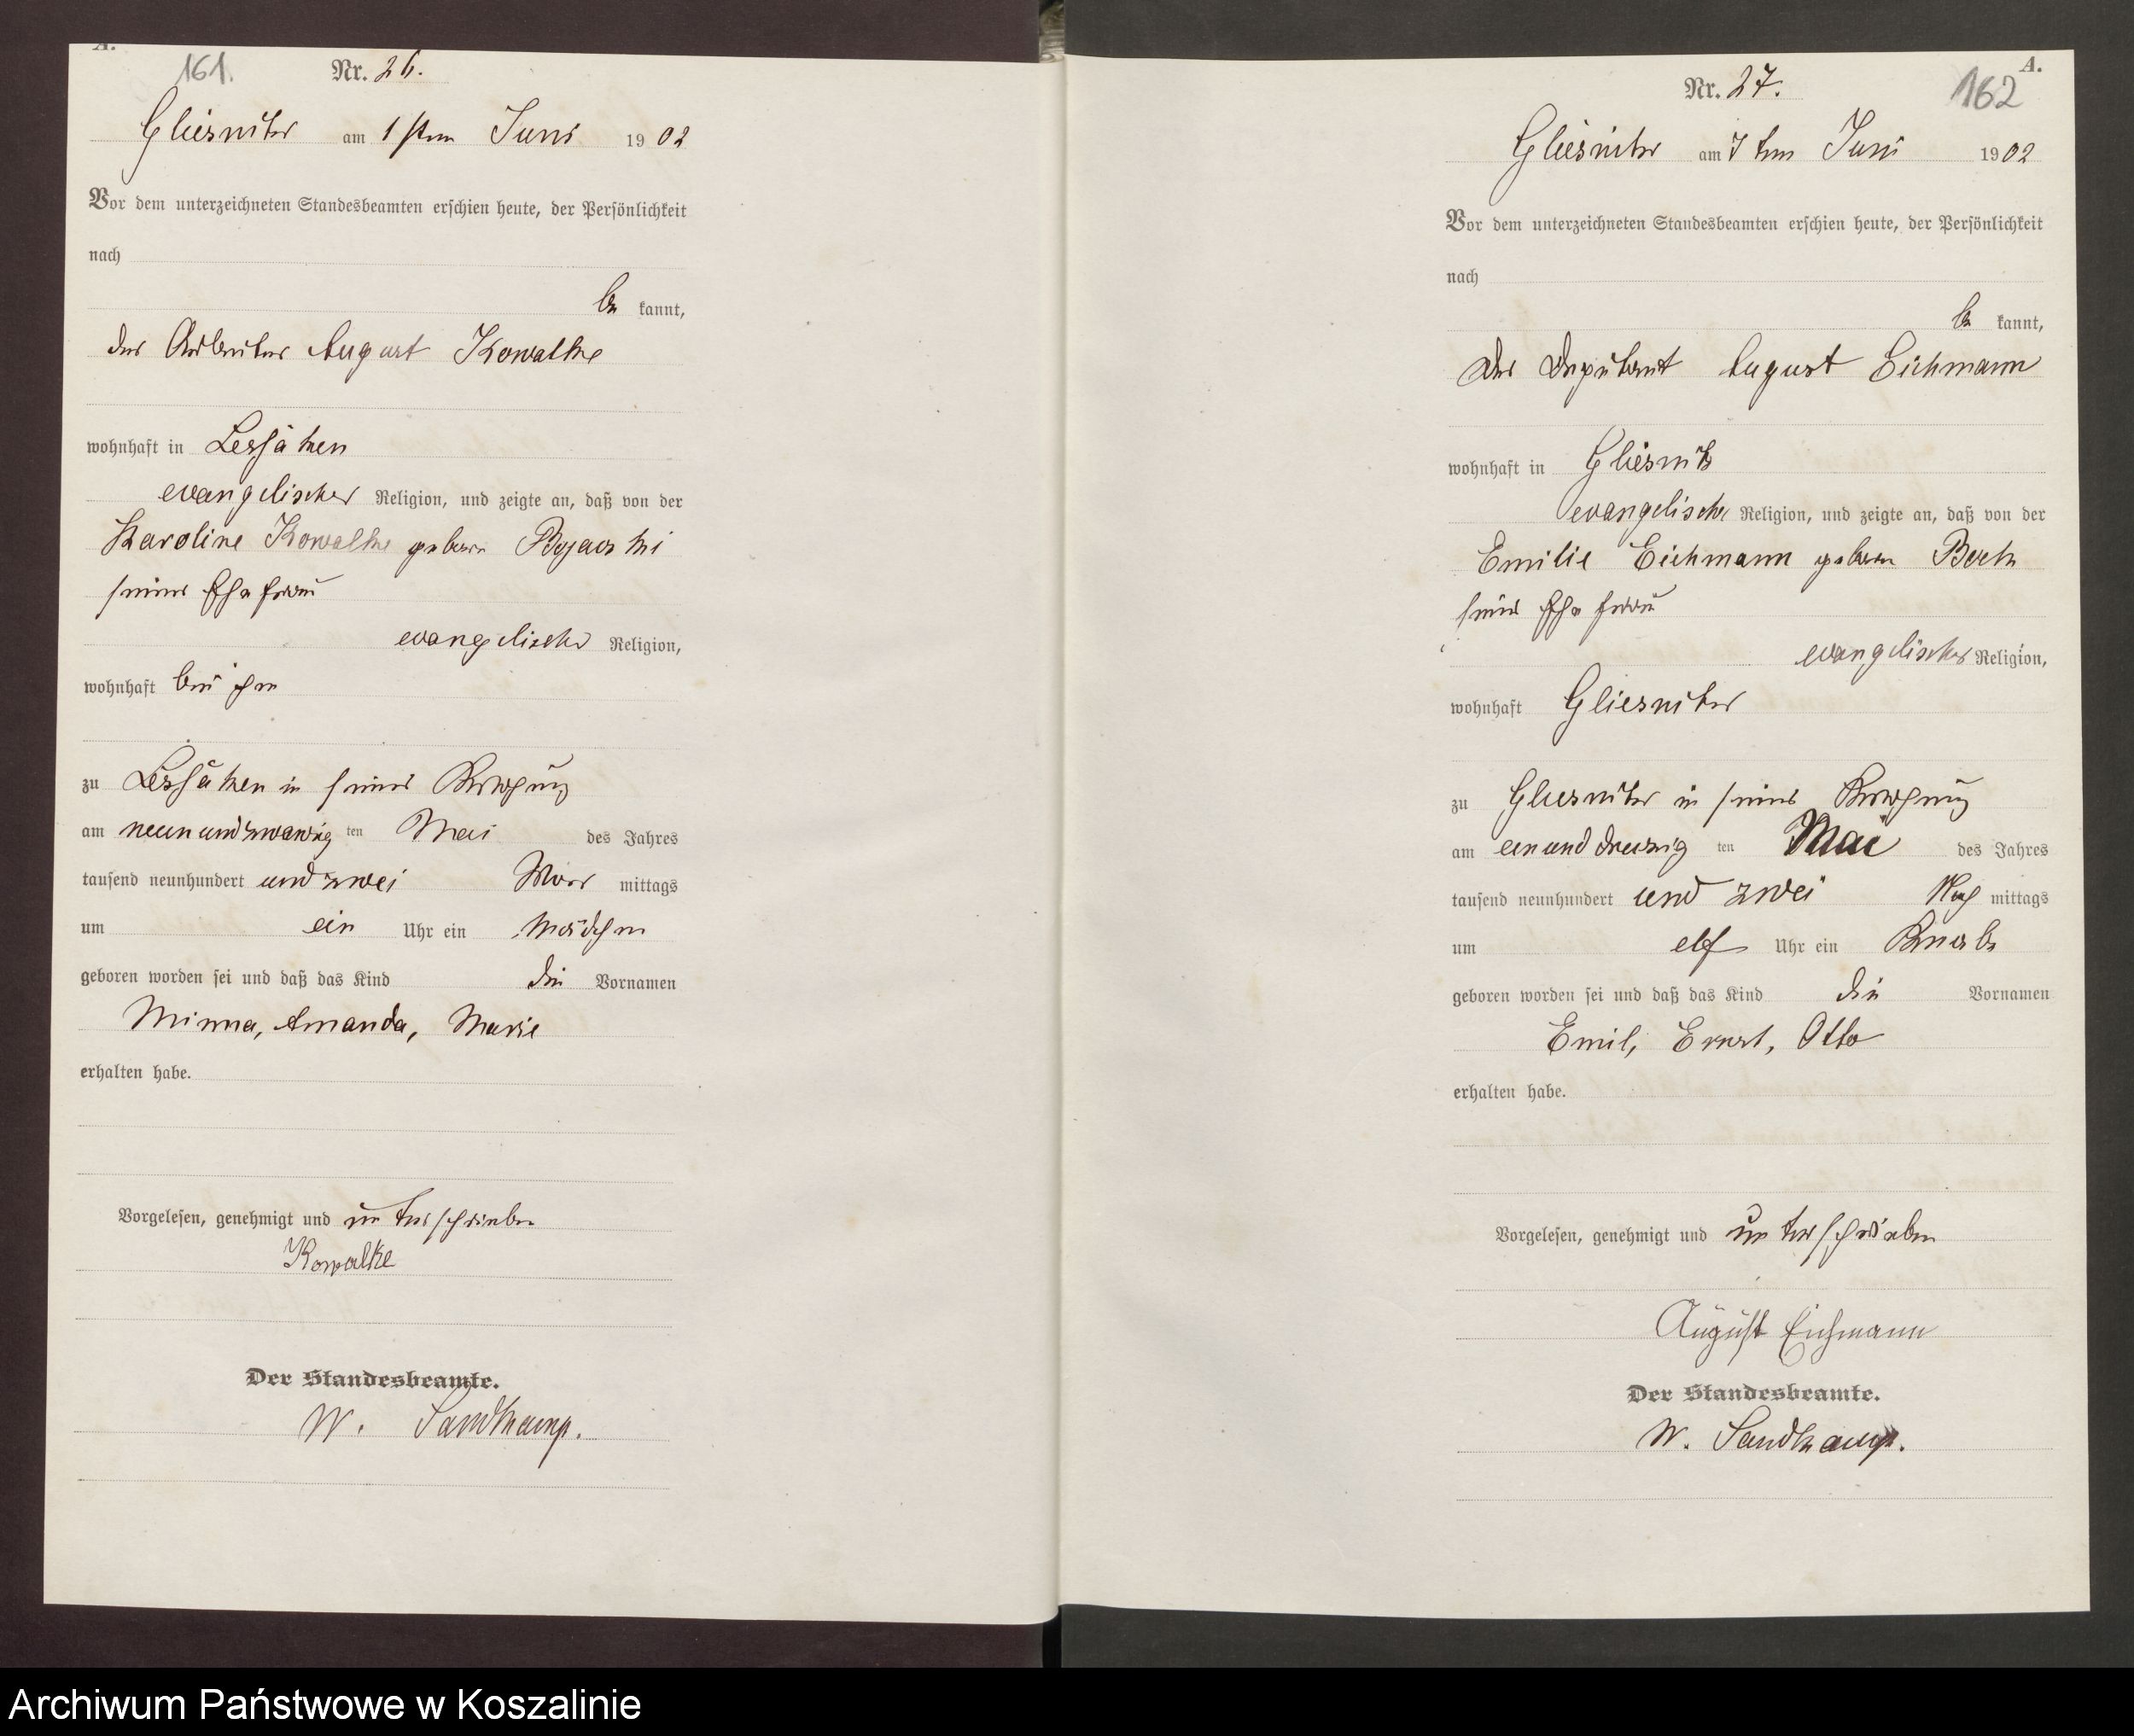 A.
161.
Nr. 26.
Gliesnitz am 1 sten Juni 1902
Vor dem unterzeichneten Standesbeamten erschien heute, der Persönlichkeit
nach
be kannt,
der Arbeiter August Kowalke
wohnhaft in Lessaken
evangelischer Religion, und zeigte an, daß von der
Karoline Kowalke geboren
seiner Ehefrau
evangelischer Religion,
wohnhaft bei ihm
zu Lessaken in seiner Wohnung
am neunundzwanzig ten Mai des Jahres
tausend neunhundert und zwei Vor mittags
um ein Uhr ein Mädchen
geboren worden sei und daß das Kind die Vornamen
Minna, Amanda, Marie
erhalten habe.
Vorgelesen, genehmigt und unterschrieben
Kowalke
Der Standesbeamte.
W. Sandkamp.
A.
162
Nr. 27.
Gliesnitz am 7 ten Juni 1902
Vor dem unterzeichneten Standesbeamten erschien heute, der Persönlichkeit
nach
be kannt,
Der Deputant August Eichmann
wohnhaft in Gliesnitz
evangelischer Religion, und zeigte an, daß von der
Emilie Eichmann geboren
seiner Ehefrau
evangelischer Religion,
wohnhaft Gliesnitz
zu Gliesnitz in seiner Wohnung
am einunddreizig ten Mai des Jahres
tausend neunhundert und zwei Nach mittags
um elf Uhr ein Knabe
geboren worden sei und daß das Kind die Vornamen
Emil, Ernst, Otto
erhalten habe.
Vorgelesen, genehmigt und unterschrieben
August Eichmann
Der Standesbeamte.
W. Sandkamp.
Archiwum Państwowe w Koszalinie